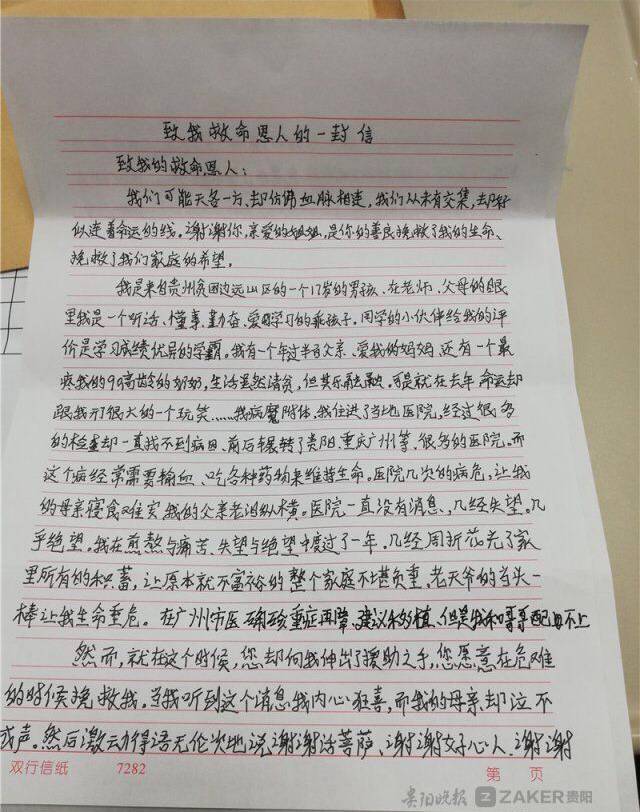 致我救命恩人的一封信
致我的救命恩人:
我们可能天各一方,却仿佛血脉相连,我们从未有交集,却好
似连着命运的线。谢谢你,亲爱的姐姐,是你的善良挽救了我的生命、
挽救了我们家庭的希望。
我是来自贵州贫困边远山区的一个17岁的男孩、在老师、父母的眼
里我是一个听话、懂事、勤奋、爱学习的乖孩子。同学的小伙伴给我的评
价是学习成绩优异的学霸。我有一个年过半百父亲、爱我的妈妈,还有一个最
疼我的99高龄的奶奶,生活虽然清贫,但其乐融融。可是就在去年命运却
跟我开了很大的一个玩笑......我病魔附体,我住进了当地医院,经过很多
的检查却一直找不到病因、前后辗转了贵阳、重庆广州等、很多的医院。而
这个病经常需要输血、吃各种药物来维持生命。医院几次的病危,让我
的母亲寝食难安我的父亲老泪纵横。医院一直没有消息、几经失望。几
乎绝望。我在煎熬与痛苦、失望与绝望中度过了一年。几经周折花光了家
里所有的积蓄,让原本就不富裕的整个家庭不堪负重、老天爷的当头一
棒让我生命垂危。在广州市医确诊重症再障,建议移植,但是我和哥哥配 不上
然而,就在这个时候,您却向我伸出了援助之手,您愿意在危难
的时候挽救我。当我听到这个消息我内心狂喜,而我的母亲却泣不
成声。然后激动得语无伦次地说谢谢活菩萨、谢谢好心人、谢谢
双行信纸 7282 第 页
贵阳晚报 ZAKER贵阳